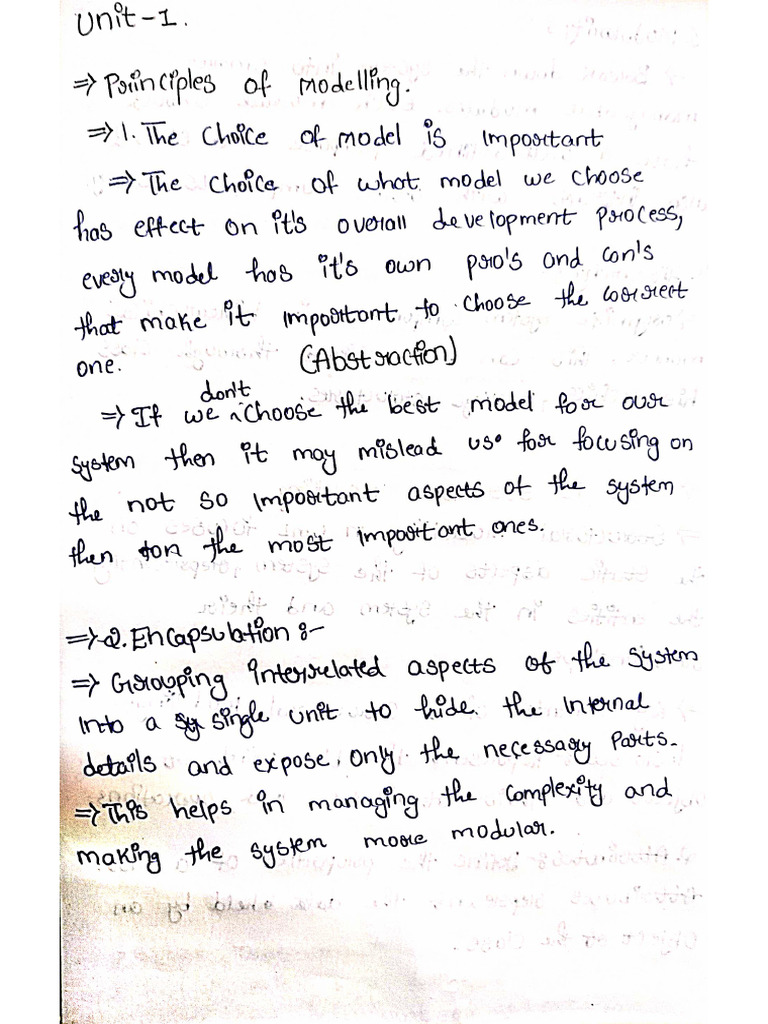 Unit-1.
⇒ Principles of modelling.
⇒ 1. The Choice of model is important
⇒ The choice of what model we choose
has effect on it's overall development process,
every model has it's own pro's and con's
that make it important to choose the correct
one. (Abstraction)
don't
⇒ If we ^ choose the best model for our
system then it may mislead us for focusing on
the not so important aspects of the system
then on the most important ones.
⇒ 2. Encapsulation :-
⇒ Grouping interrelated aspects of the system
into a single unit to hide the internal
details and expose only the necessary parts.
⇒ This helps in managing the complexity and
making the system more modular.